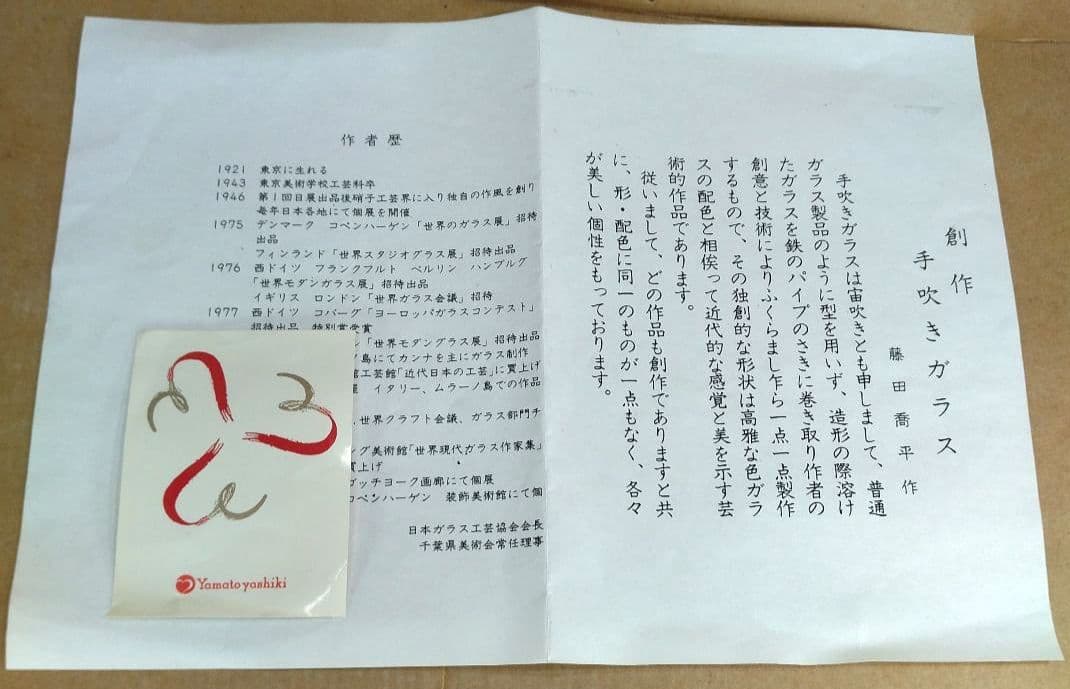 創作
手吹きガラス
藤田喬平作
手吹きガラスは宙吹きとも申しまして、普通
ガラス製品のように型を用いず、造形の際溶け
たガラスを鉄のパイプのさきに巻き取り作者の
創意と技術によりふくらまし乍ら一点一点製作
するもので、その独創的な形状は高雅な色ガラ
スの配色と相俟って近代的な感覚と美を示す芸
術的作品であります。
従いまして、どの作品も創作でありますと共
に、形・配色に同一のものが一点もなく、各々
が美しい個性をもっております。
作者歴
1921 東京に生れる
1943 東京美術学校工芸科卒
1946 第1回日展出品後硝子工芸界に入り独自の作風を創り
毎年日本各地にて個展を開催
1975 デンマーク コペンハーゲン「世界のガラス展」招待
出品
フィンランド「世界スタジオグラス展」招待出品
1976 西ドイツ フランクフルト ベルリン ハンブルグ
「世界モダンガラス展」招待出品
イギリス ロンドン「世界ガラス会議」招待
1977 西ドイツ コバーグ「ヨーロッパガラスコンテスト」
招待出品 特別賞受賞
「世界モダングラス展」招待出品
島にてカンナを主にガラス制作
工芸館「近代日本の工芸」に買上げ
イタリー、ムラーノ島での作品
世界クラフト会議、ガラス部門チ
グ美術館「世界現代ガラス作家集」
買上げ
ガッチョーク画廊にて個展
コペンハーゲン 装飾美術館にて個
日本ガラス工芸協会会長
千葉県美術会常任理事
Yamatoyashiki